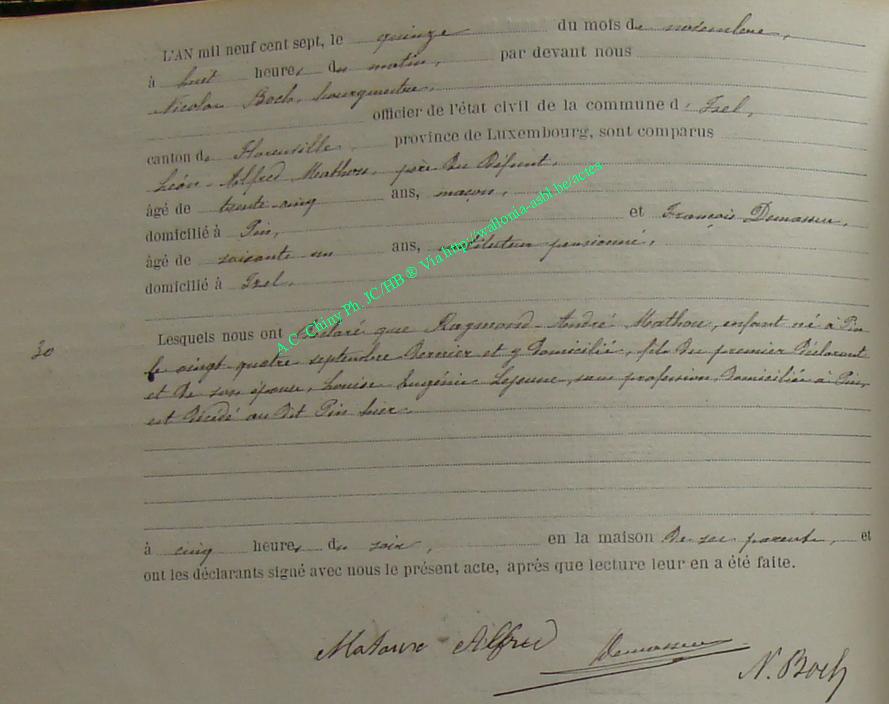 L'AN mil neuf cent sept, le quinze du mois de novembre,
à huit heures du matin, par devant nous
Nicolas Boch, bourgmestre,
officier de l'état civil de la commune d' Izel,
canton de Florenville province de Luxembourg, sont comparus
Léon-Alfred Mathon, père du défunt,
âgé de trente cinq ans, maçon,
domicilié à Pin, et François Demasseu,
âgé de soixante un ans, instituteur pensionné,
domicilié à Izel.
A.C. Chiny Ph. JC/HB ® Via http://wallonia-asbl.be/actes
30
Lesquels nous ont déclaré que Raymond-André Mathon, enfant né à Pin
le vingt quatre septembre dernier et y domicilié, fils du premier déclarant
et de son épouse, Louise Eugénie Lejeune, sans profession, domiciliée à Pin,
est décédé au dit Pin hier
à cinq heures du soir, en la maison de ses parents, et
ont les déclarants signé avec nous le présent acte, après que lecture leur en a été faite.
Alfred
N. Boch